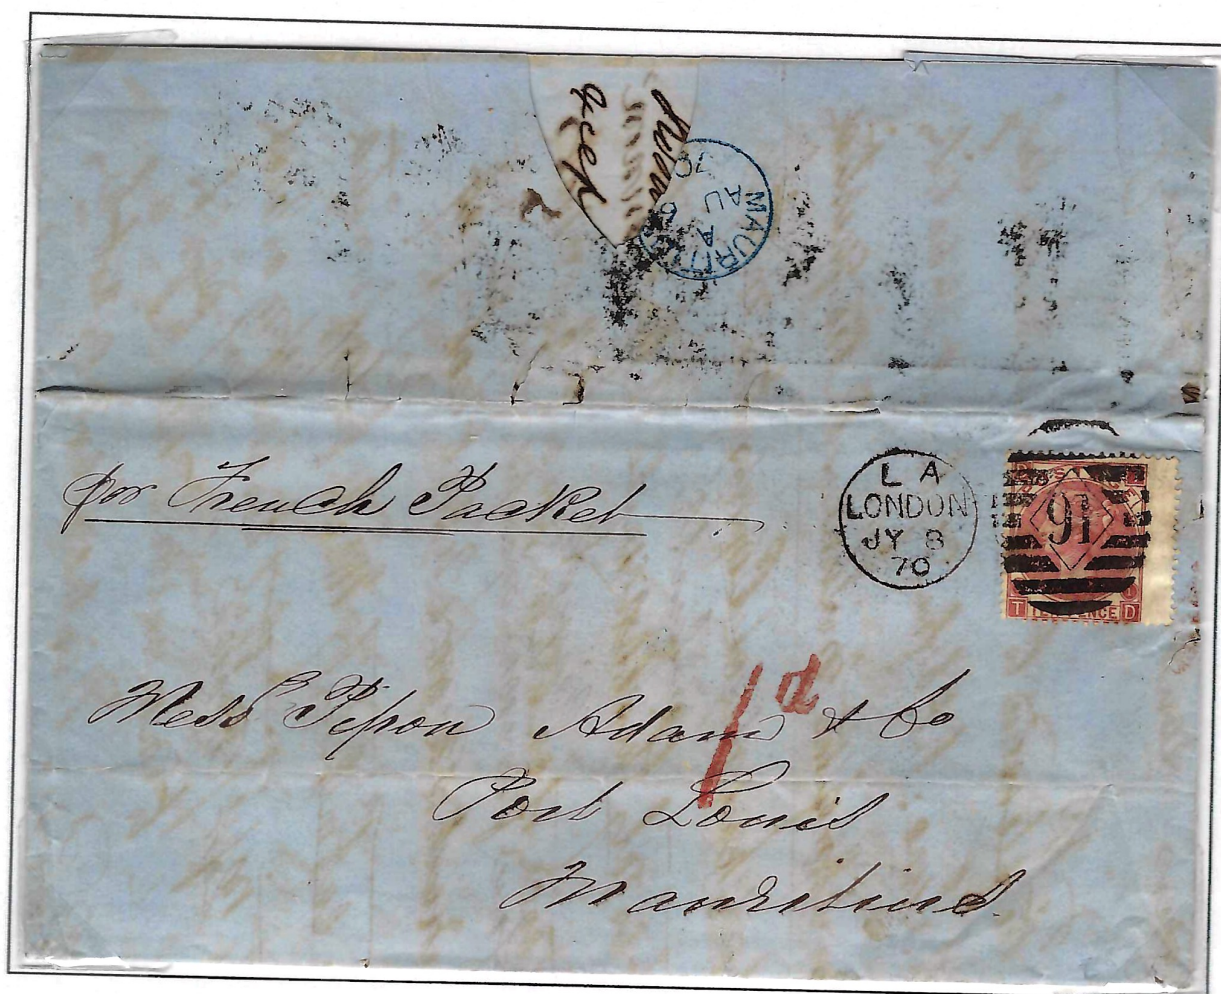 MAURITIUS
A
AU 6
70
per French Packet
L A
LONDON
JY 8
70
91
T TEN PENCE D
1d
Mess Pipon Adam & Co
Port Louis
Mauritius